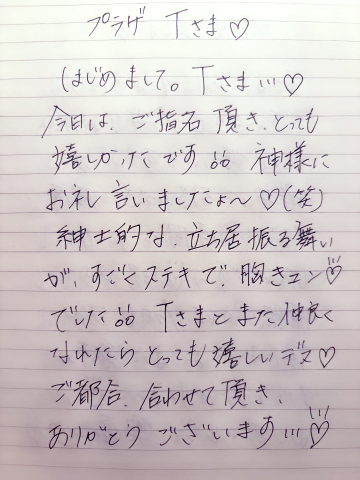 プラザ Tさま♡
はじめまして。Tさま…♡
今日は、ご指名 頂き、とっても
嬉しかったです。。神様に
お礼言いましたよ〜♡(笑)
紳士的な、立ち居振る舞い
が、すごくステキで、胸きュン♡
でした。。Tさまとまた仲良く
なれたら とっても 嬉しいデス♡
ご都合、合わせて頂き、
ありがとう ございます…♡